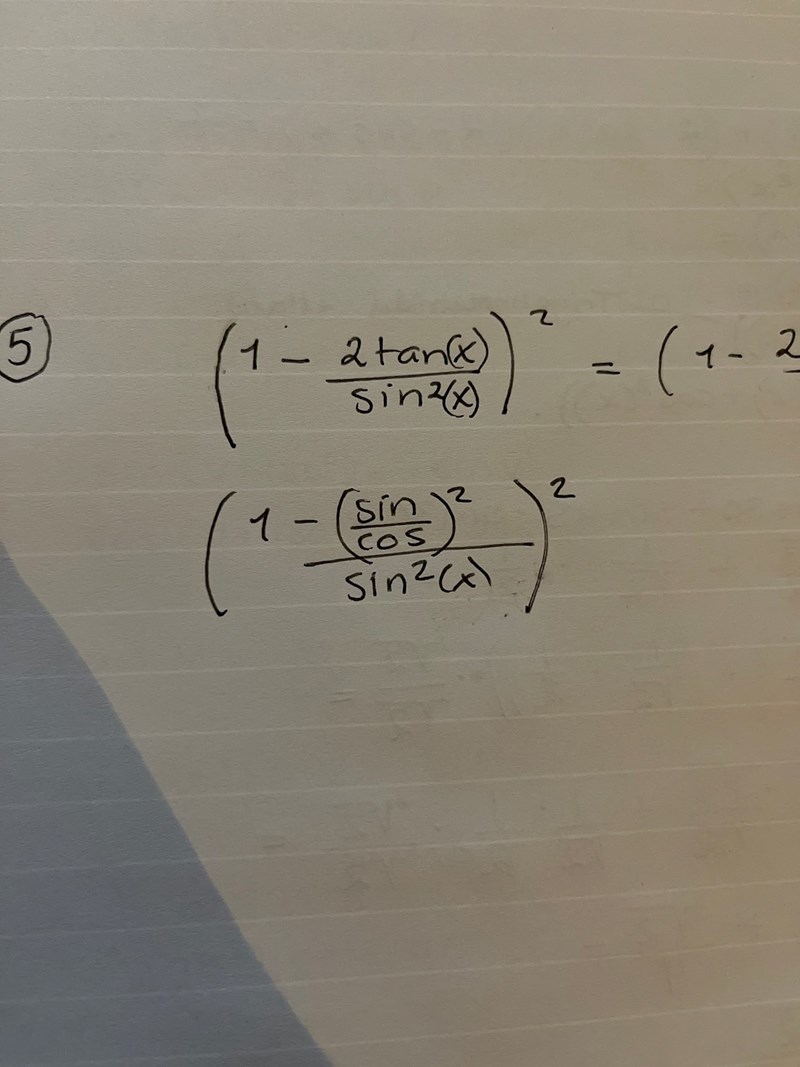 ⑤ (1 - 2tan(x)/sin²(x))² = (1 - 2
(1 - (sin/cos)²/sin²(x))²